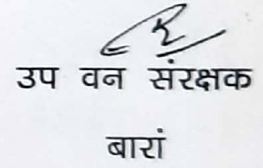 उप वन संरक्षक
बारां